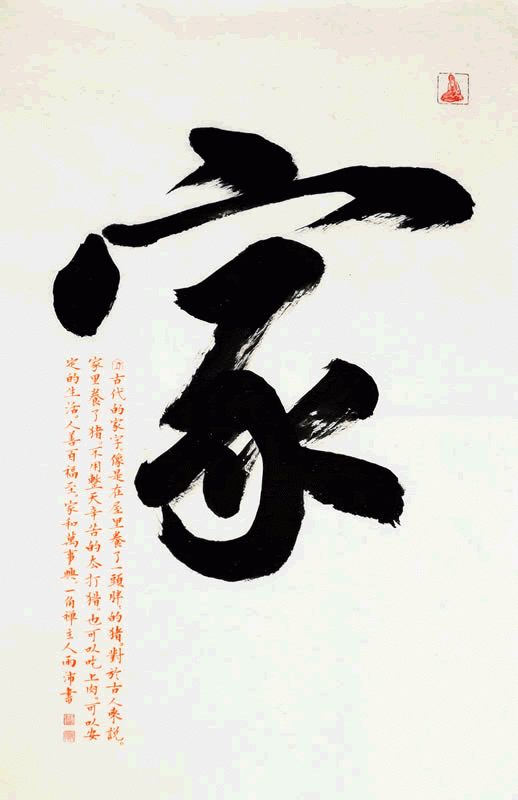 家
古代的家字。像是在屋里養了一頭胖、的猪。對於古人來説。
家里養了猪。不用整天辛苦的去打猎。也可以吃上肉。可以安
定的生活。人善百福至。家和萬事興。一角禅主人雨沛書